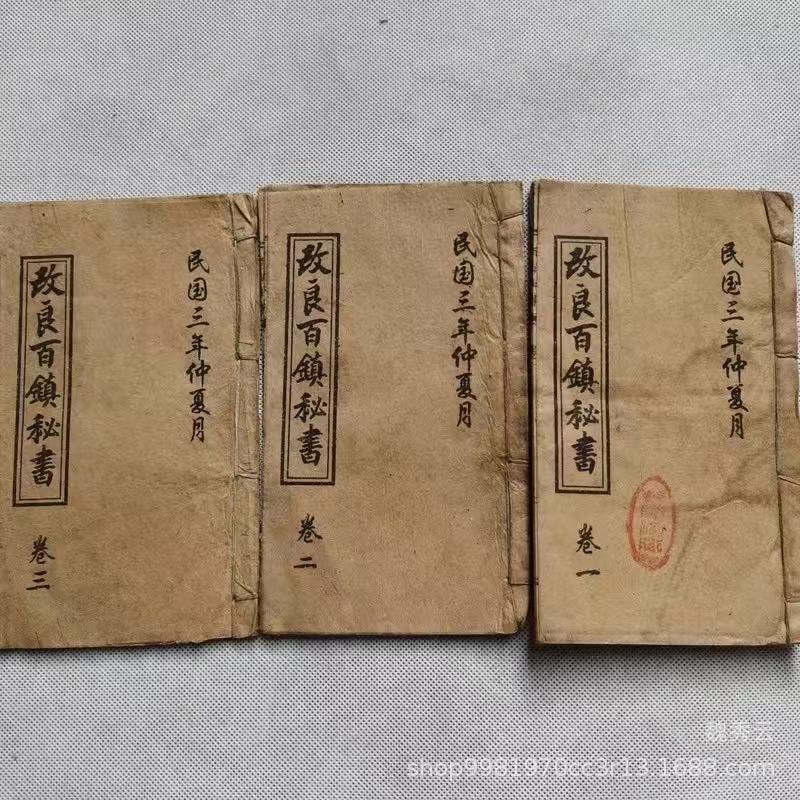 民国三年仲夏月
改良百鎮秘書
卷一
民国三年仲夏月
改良百鎮秘書
卷二
民国三年仲夏月
改良百鎮秘書
卷三
魏秀云
shop9981970cc3r13.1688.com